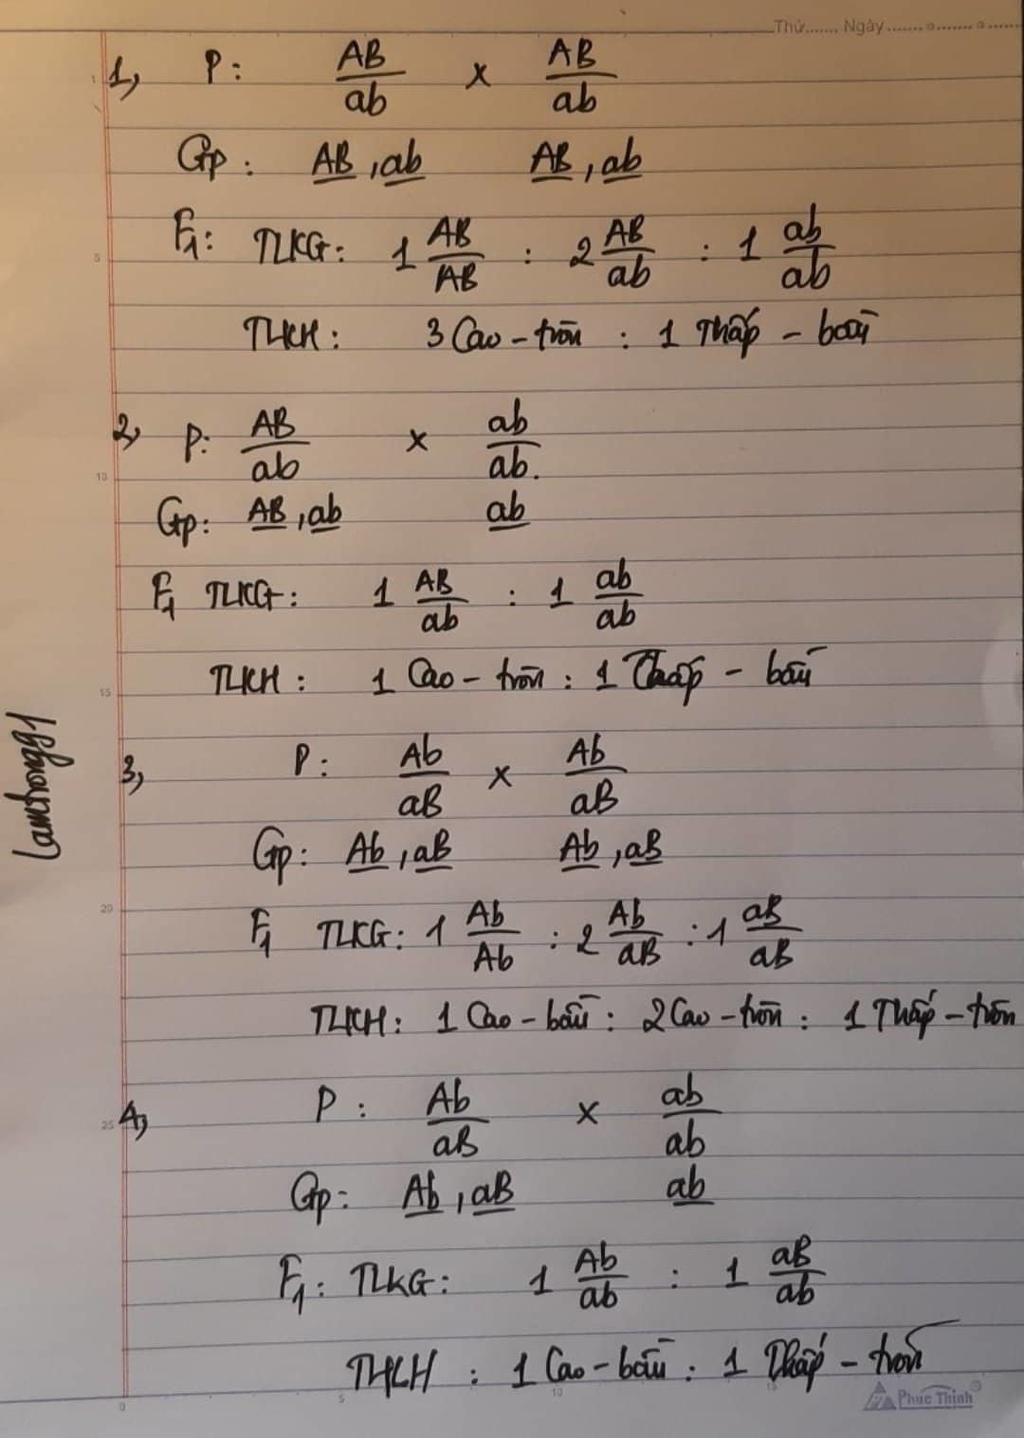 Thứ....... Ngày.......
1, P: AB/ab x AB/ab
Gp: AB, ab AB, ab
F1: TLKG: 1 AB/AB : 2 AB/ab : 1 ab/ab
TLKH: 3 Cao - tròn : 1 Thấp - bầu
2, P: AB/ab x ab/ab.
Gp: AB, ab ab
F1 TLKG: 1 AB/ab : 1 ab/ab
TLKH: 1 Cao - tròn : 1 Thấp - bầu
3, P: Ab/aB x Ab/aB
Gp: Ab, aB Ab, aB
F1 TLKG: 1 Ab/Ab : 2 Ab/aB : 1 aB/aB
TLKH: 1 Cao - bầu : 2 Cao - tròn : 1 Thấp - tròn
4, P: Ab/aB x ab/ab
Gp: Ab, aB ab
F1: TLKG: 1 Ab/ab : 1 aB/ab
TLKH: 1 Cao - bầu : 1 Thấp - tròn
Phuc Thinh